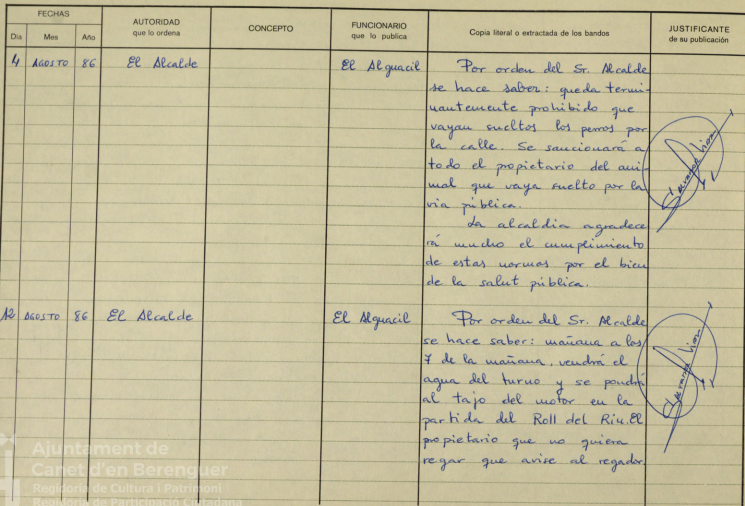 FECHAS
Día Mes Año
AUTORIDAD
que lo ordena
CONCEPTO
FUNCIONARIO
que lo publica
Copia literal o extractada de los bandos
JUSTIFICANTE
de su publicación
4 AGOSTO 86 El Alcalde El Alguacil Por orden del Sr. Alcalde
se hace saber: queda termi-
nantemente prohibido que
vayan sueltos los perros por
la calle. Se sancionará a
todo el propietario del ani-
mal que vaya suelto por la
via pública.
La alcaldia agradece
rá mucho el cumplimiento
de estas normas por el bien
de la salut pública.
Salvador
12 AGOSTO 86 El Alcalde El Alguacil Por orden del Sr. Alcalde
se hace saber: mañana a las
7 de la mañana, vendrá el
agua del turno y se pondrá
al tajo del motor en la
partida del Roll del Riu. El
propietario que no quiera
regar que avise al regador.
Salvador
Ajuntament de
Canet d'en Berenguer
Regidoria de Cultura i Patrimoni
Regidoria de Participació Ciutadana